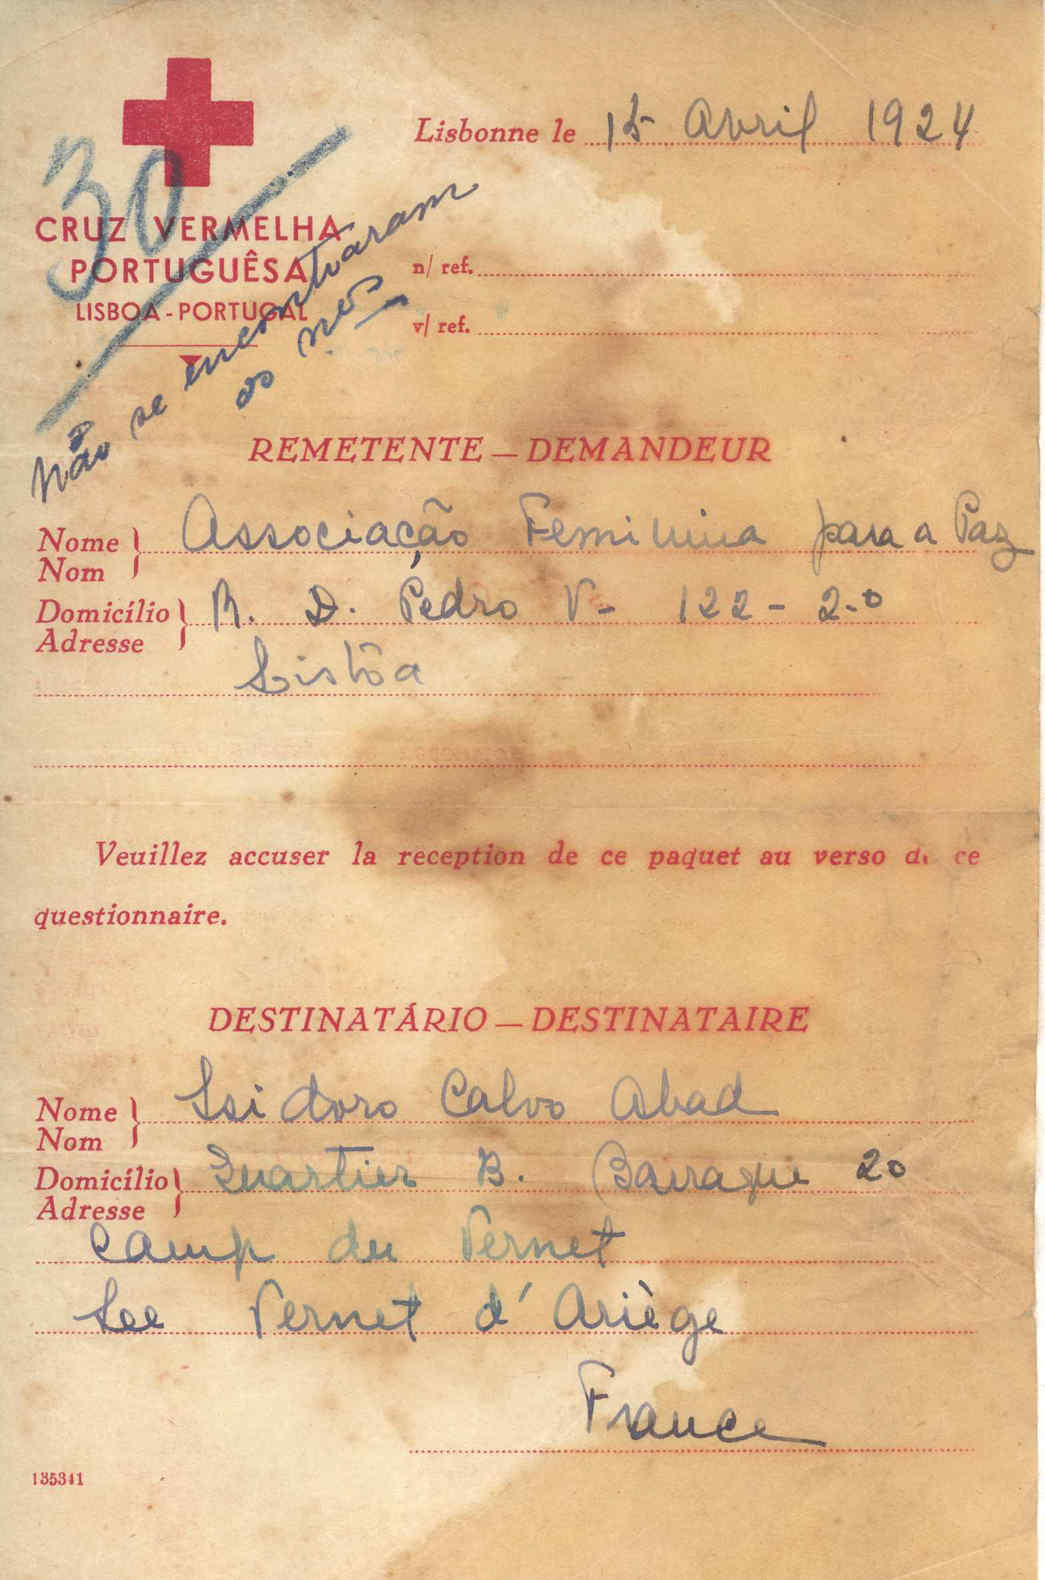 Lisbonne le 15 Avril 1924
30
CRUZ VERMELHA
PORTUGUÊSA
LISBOA - PORTUGAL
n/ ref.
v/ ref.
Não se encontraram
os nos
REMETENTE — DEMANDEUR
Nome
Nom
Associação Feminina para a Paz
Domicílio
Adresse
R. D. Pedro V - 122 - 2.o
Lisbôa
Veuillez accuser la reception de ce paquet au verso de ce
questionnaire.
DESTINATÁRIO — DESTINATAIRE
Nome
Nom
Isidoro Calvo Abad
Domicílio
Adresse
Quartier B. Barraque 20
Camp du Vernet
Lee Vernet d'Ariège
France
135341